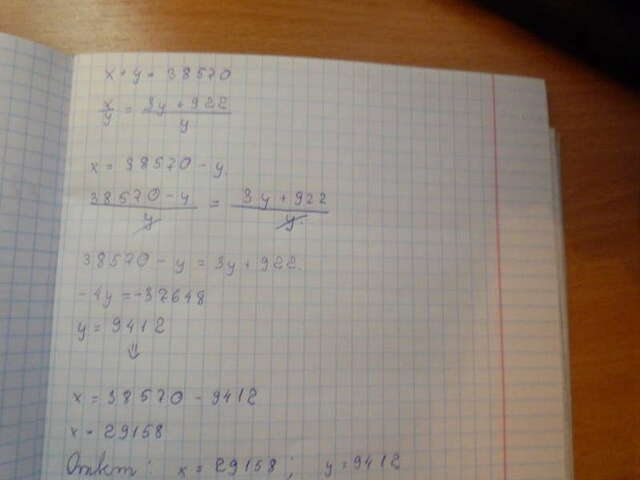 x + y = 38570
x/y = (3y + 922)/y
x = 38570 - y.
(38570 - y)/y = (3y + 922)/y.
38570 - y = 3y + 922.
-4y = -37648
y = 9412
⇓
x = 38570 - 9412
x = 29158
Ответ: x = 29158; y = 9412